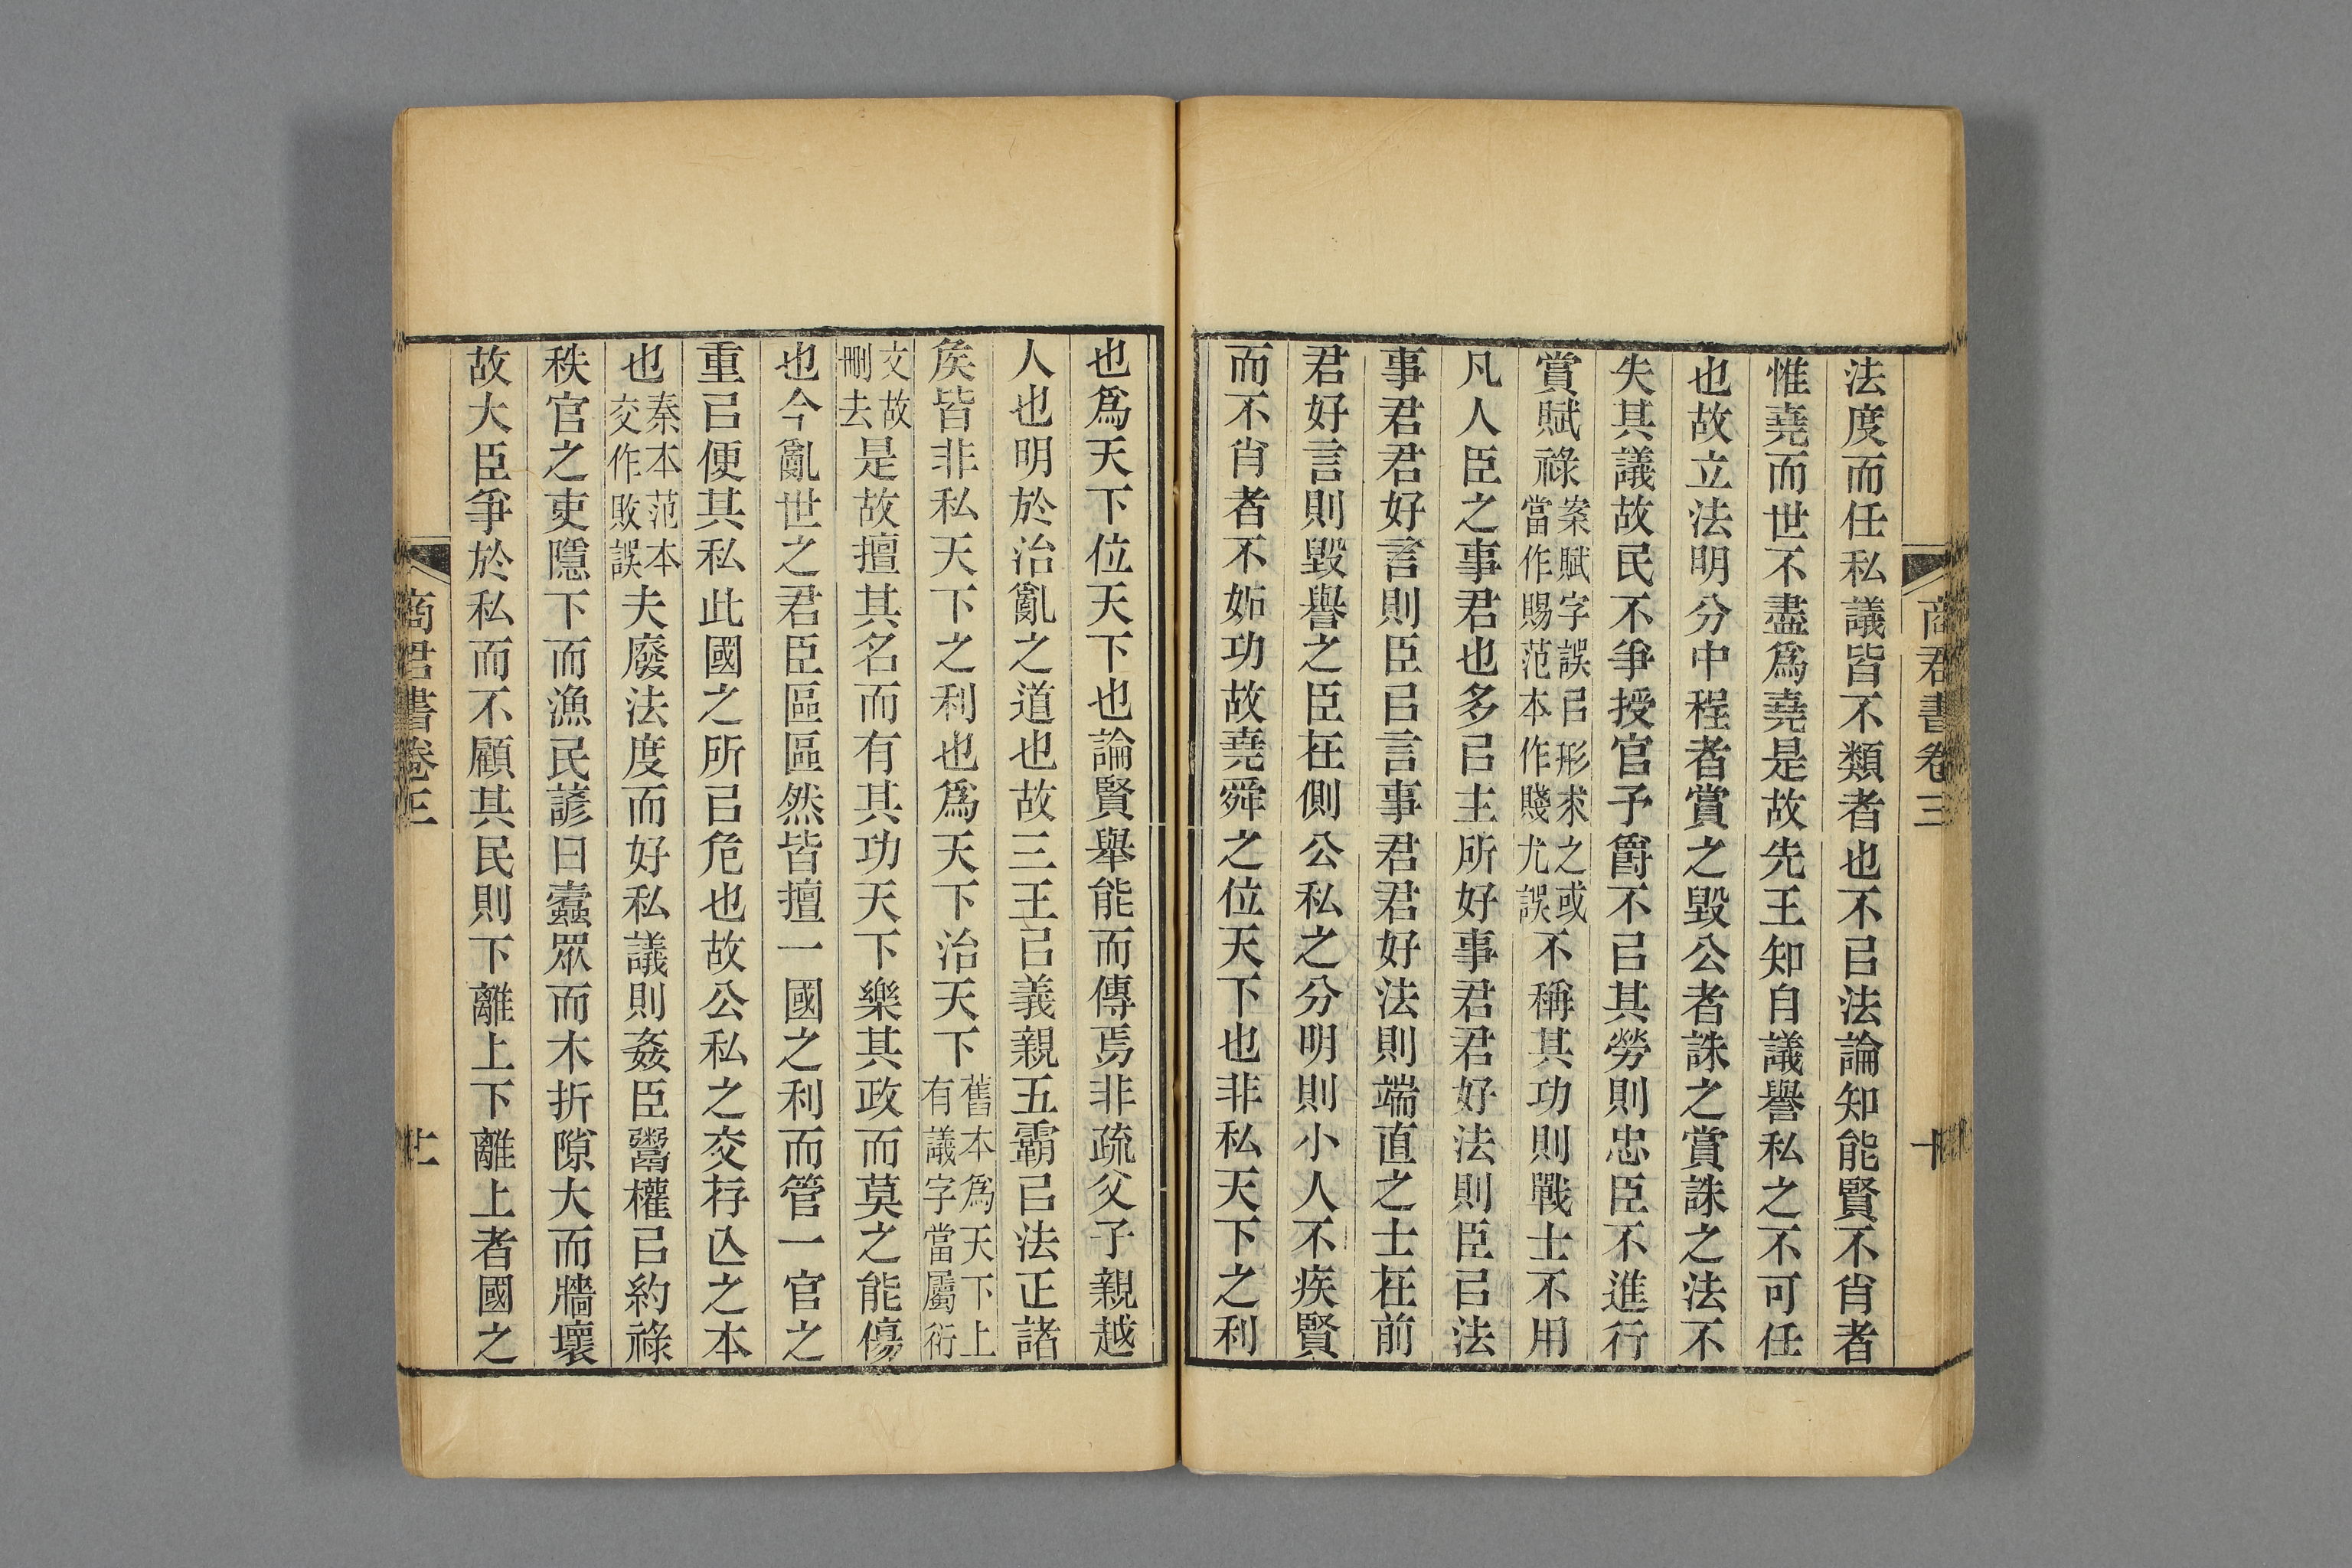 商君書卷三
十
法度而任私議皆不類者也不㠯法論知能賢不肖者
惟堯而世不盡爲堯是故先王知自議譽私之不可任
也故立法明分中程者賞之毀公者誅之賞誅之法不
失其議故民不爭授官予爵不㠯其勞則忠臣不進行
賞賦祿案賦字誤㠯形求之或當作賜范本作賤尤誤不稱其功則戰士不用
凡人臣之事君也多㠯主所好事君君好法則臣㠯法
事君君好言則臣㠯言事君君好法則端直之士在前
君好言則毀譽之臣在側公私之分明則小人不疾賢
而不肖者不妬功故堯舜之位天下也非私天下之利
也爲天下位天下也論賢舉能而傳焉非疏父子親越
人也明於治亂之道也故三王㠯義親五霸㠯法正諸
矦皆非私天下之利也爲天下治天下舊本爲天下上有議字當屬衍
文故刪去是故擅其名而有其功天下樂其政而莫之能傷
也今亂世之君臣區區然皆擅一國之利而管一官之
重㠯便其私此國之所㠯危也故公私之交存亾之本
也秦本范本交作敗誤夫廢法度而好私議則姦臣鬻權㠯約祿
秩官之吏隱下而漁民諺曰蠹眾而木折隙大而牆壞
故大臣爭於私而不顧其民則下離上下離上者國之
商君書卷三
十一